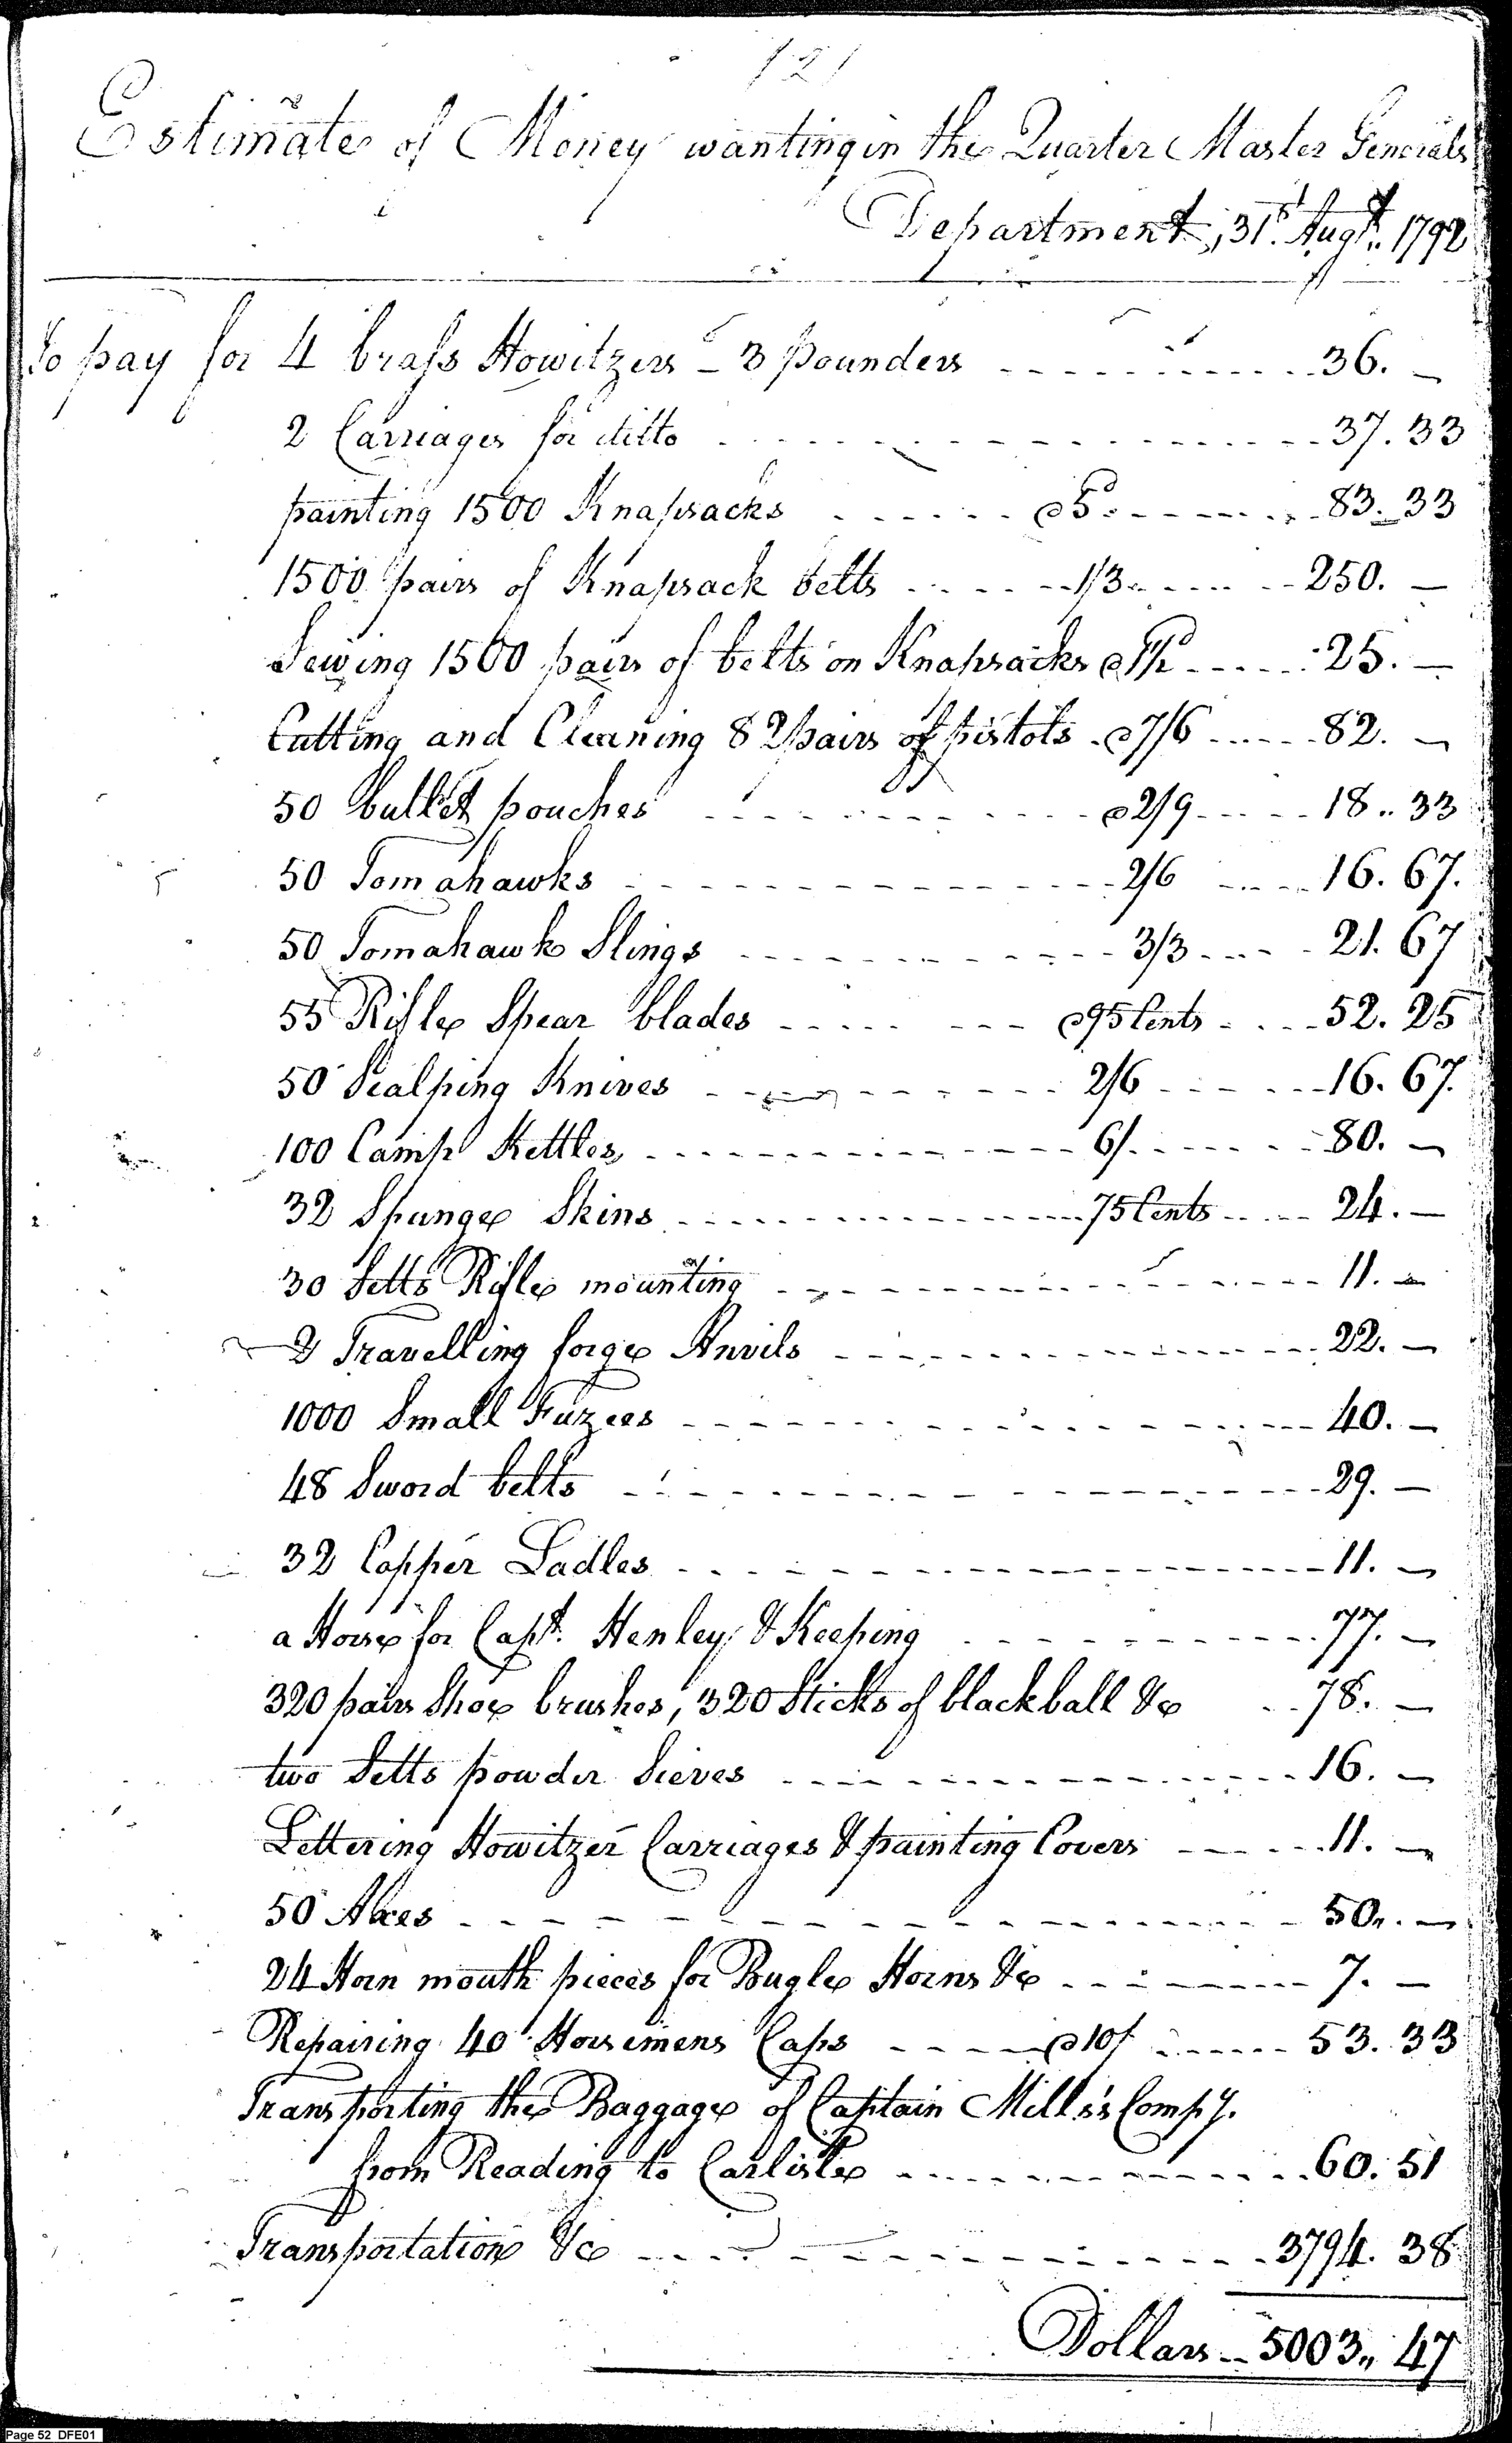 121
Estimate of Money wanting in the Quarter Master Generals
Department, 31st. Augt. 1792
To pay for 4 brass Howitzers - 3 pounders - - - - 36. -
2 Carriages for ditto - - - - 37.33
painting 1500 Knapsacks - - - - @ 5d - - - - 83.33
1500 pairs of Knapsack belts - - - - 1/3 - - - - 250. -
Sewing 1500 pairs of belts on Knapsacks @ 1½d - - - - 25. -
Cutting and Cleaning 82 pairs of pistols @ 7/6 - - - - 82. -
50 bullet pouches - - - - @ 2/9 - - - - 18.. 33
50 Tomahawks - - - - 2/6 - - - - 16. 67.
50 Tomahawk Slings - - - - 3/3 - - - - 21. 67
55 Rifle Spear blades - - - - @ 95 Cents - - - - 52. 25
50 Scalping Knives - - - - 2/6 - - - - 16. 67.
100 Camp Kettles - - - - 6/. - - - - 80. -
32 Spunge Skins - - - - 75 Cents - - - - 24. -
30 Setts Rifle mounting - - - - 11. -
2 Travelling forge Anvils - - - - 22. -
1000 Small Fuzees - - - - 40. -
48 Sword belts - - - - 29. -
32 Copper Ladles - - - - 11. -
a Horse for Capt. Henley & Keeping - - - - 77. -
320 pairs Shoe brushes, 320 Sticks of blackball &c - - 78. -
two Setts powder Sieves - - - - 16. -
Lettering Howitzer Carriages & painting Covers - - - - 11. -
50 Axes - - - - 50.. -
24 Horn mouth pieces for Bugle Horns &c - - - - 7. -
Repairing 40 Horsemens Caps - - - - @ 10/ - - - - 53. 33
Transporting the Baggage of Captain Mills's Compy.
from Reading to Carlisle - - - - 60. 51
Transportation &c - - - - 3794. 38
Dollars - - 5003,, 47
Page 52 DFE01